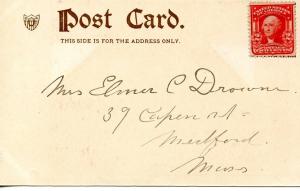 Post Card.
THIS SIDE IS FOR THE ADDRESS ONLY.
Mrs Elmer C Drowne
39 Capen st-
Medford
Mass